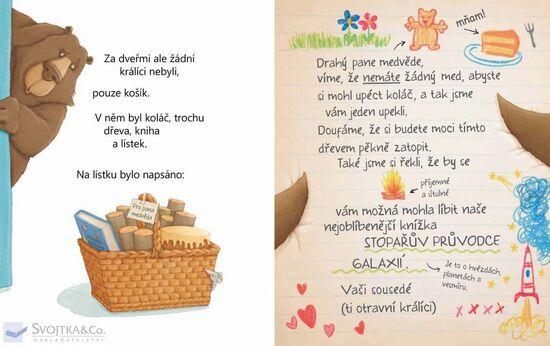 Za dveřmi ale žádní
králíci nebyli,
pouze košík.
V něm byl koláč, trochu
dřeva, kniha
a lístek.
Na lístku bylo napsáno:
Pro pana
medvěda
SVOJTKA&CO.
NAKLADATELSTVÍ
mňam!
Drahý pane medvěde,
víme, že nemáte žádný med, abyste
si mohl upéct koláč, a tak jsme
vám jeden upekli.
Doufáme, že si budete moci tímto
dřevem pěkně zatopit.
Také jsme si řekli, že by se
příjemné
a útulné
vám možná mohla líbit naše
nejoblíbenější knížka
STOPAŘŮV PRŮVODCE
GALAXIÍ
Je to o hvězdách,
planetách a
vesmíru.
Vaši sousedé
(ti otravní králíci)
x x x x